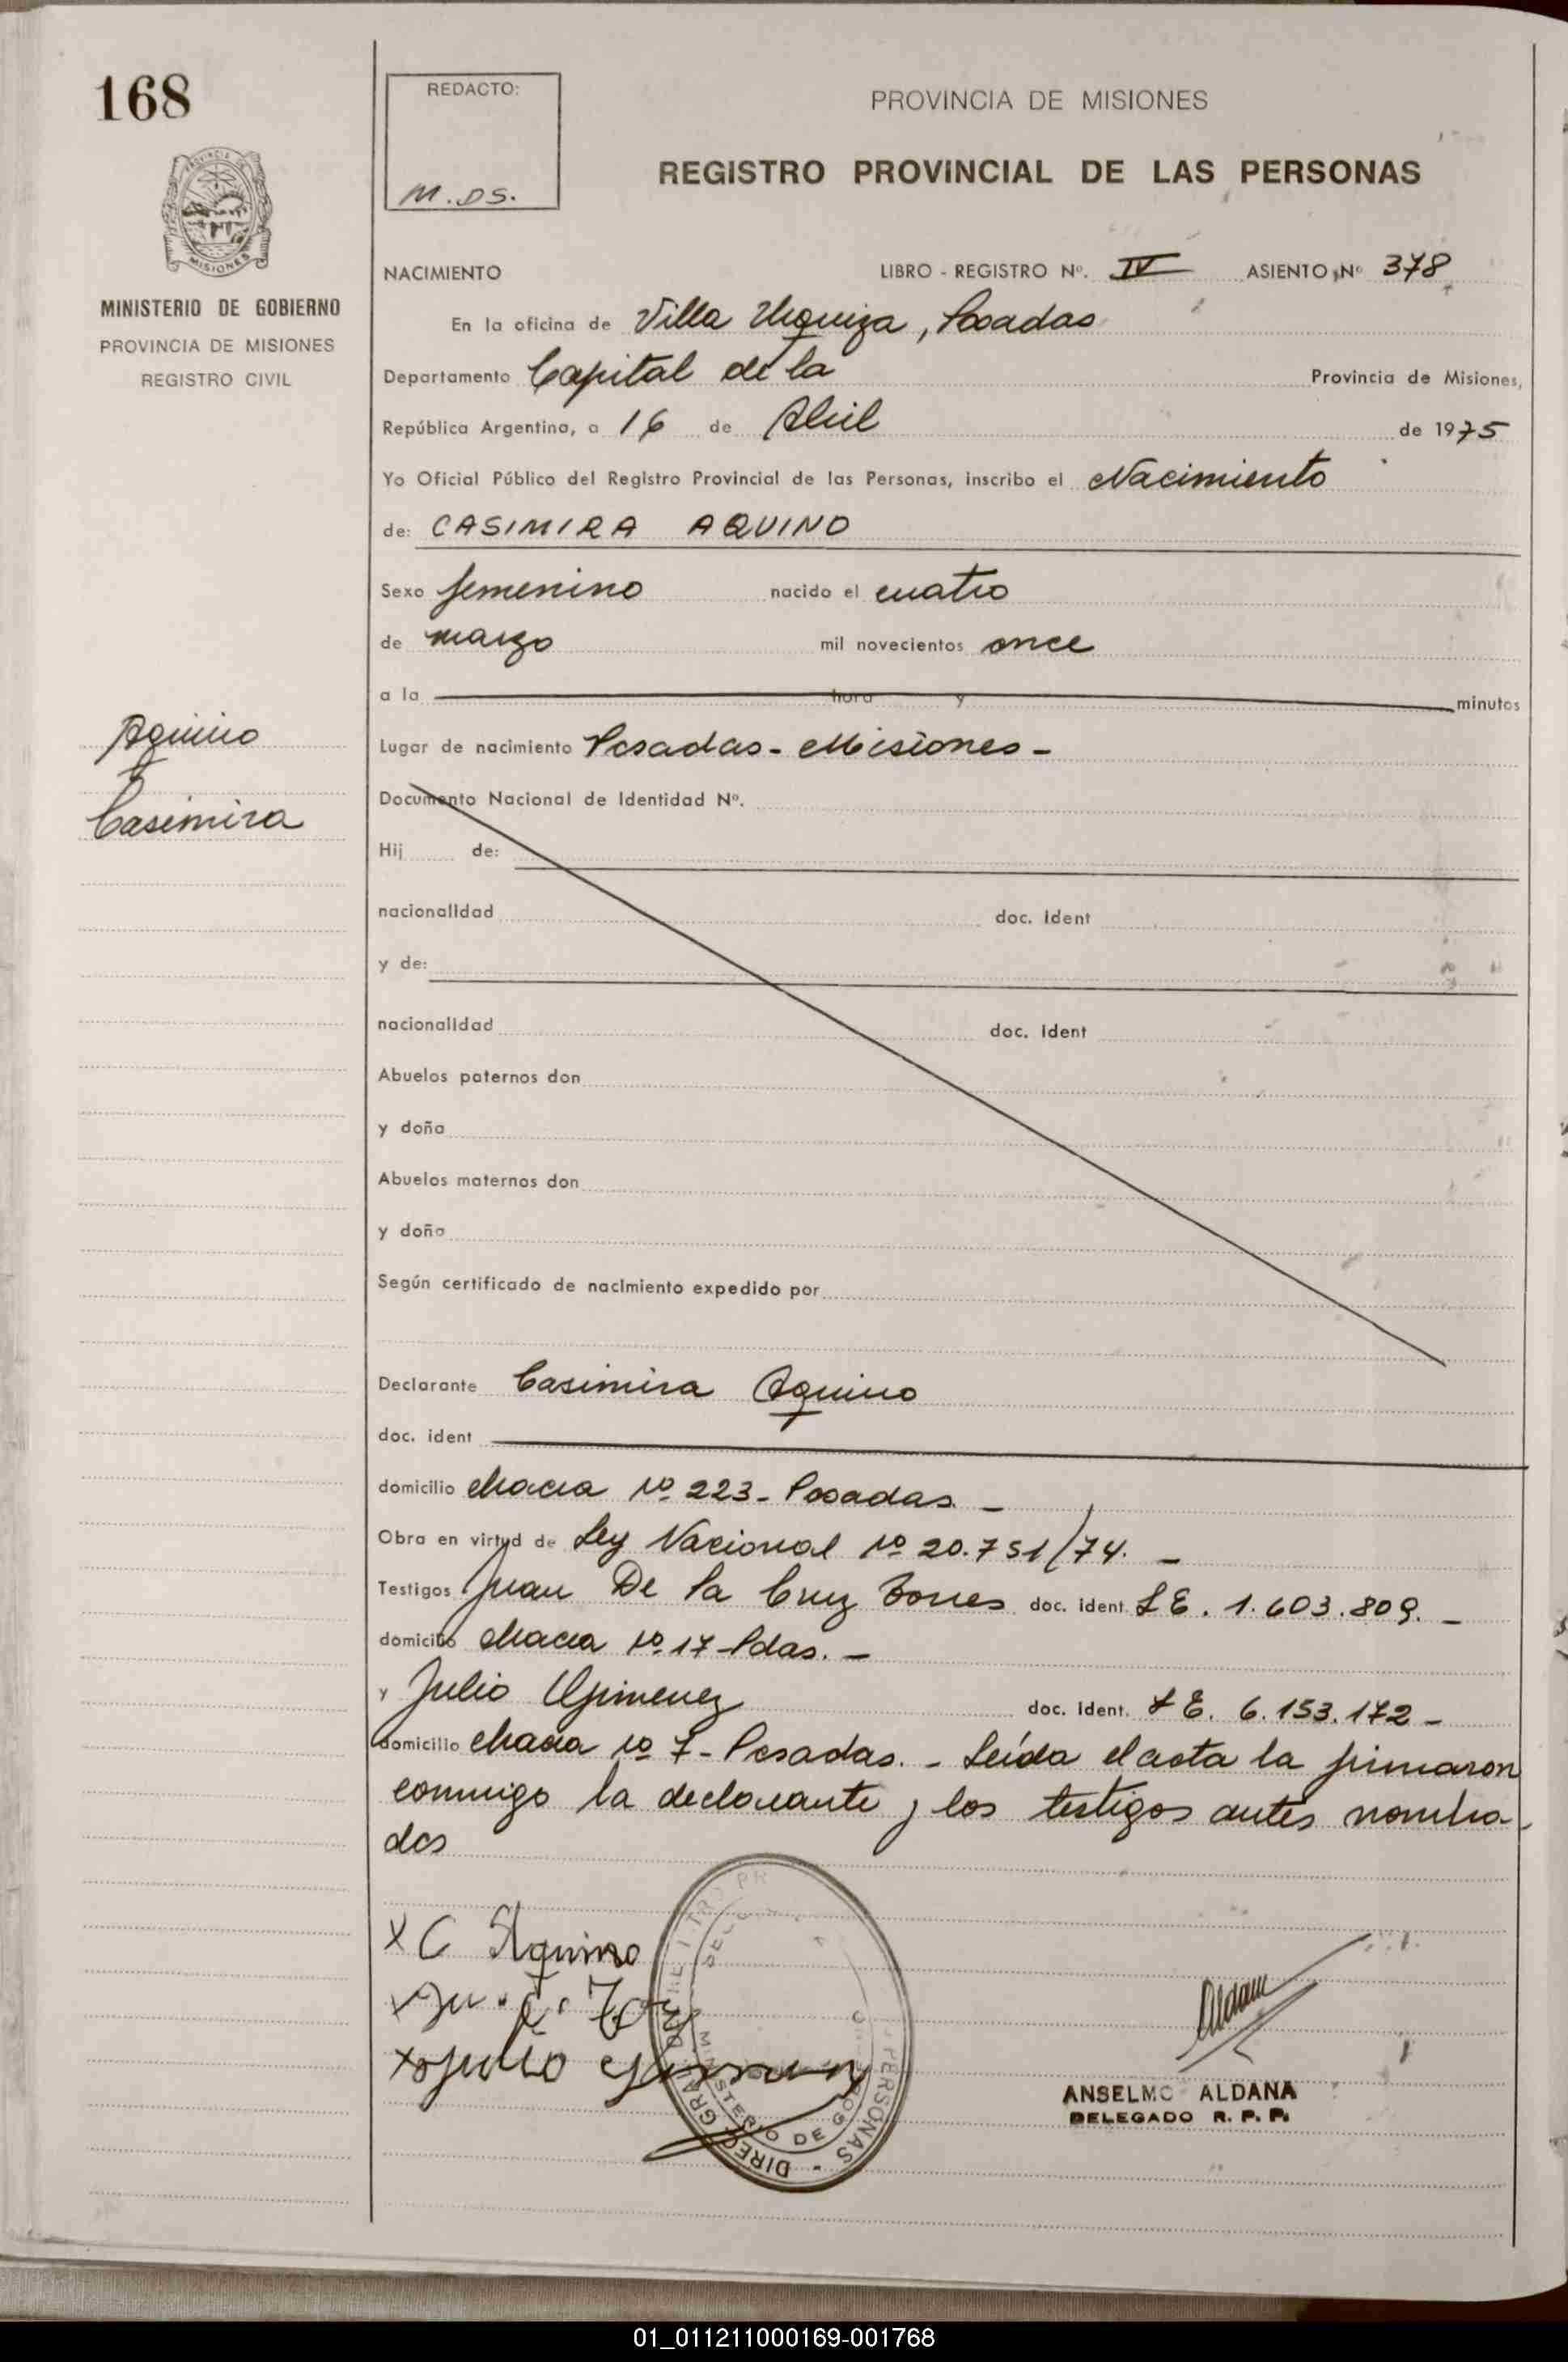 168
REDACTO:
M.DS.
PROVINCIA DE MISIONES
REGISTRO PROVINCIAL DE LAS PERSONAS
PROVINCIA DE
MISIONES
MINISTERIO DE GOBIERNO
PROVINCIA DE MISIONES
REGISTRO CIVIL
NACIMIENTO LIBRO - REGISTRO Nº. IV ASIENTO Nº 378
En la oficina de Villa Urquiza, Posadas
Departamento Capital de la Provincia de Misiones,
República Argentina, a 16 de Abril de 1975
Yo Oficial Público del Registro Provincial de las Personas, inscribo el Nacimiento
de: CASIMIRA AQUINO
Sexo femenino nacido el cuatro
de marzo mil novecientos once
a la hora y minutos
Aquino
Casimira
Lugar de nacimiento Posadas - Misiones -
Documento Nacional de Identidad Nº.
Hij de:
nacionalidad doc. ident
y de:
nacionalidad doc. ident
Abuelos paternos don
y doña
Abuelos maternos don
y doña
Según certificado de nacimiento expedido por
Declarante Casimira Aquino
doc. ident
domicilio chacra Nº 223 - Posadas. -
Obra en virtud de Ley Nacional Nº 20.751/74. -
Testigos Juan De la Cruz Torres doc. ident. L E. 1.603.809. -
domicilio chacra Nº 17 - Pdas. -
y Julio Gimenez doc. ident. L E. 6.153.172 -
domicilio chacra Nº 7 - Posadas. - Leída el acta la firmaron
conmigo la declarante y los testigos antes nombra-
dos
X C Aquino
Julio
Aldana
ANSELMO ALDANA
DELEGADO R. P. P.
MINISTERIO DE GOBIERNO
PERSONAS - DIREC. GRAL.
01_011211000169-001768